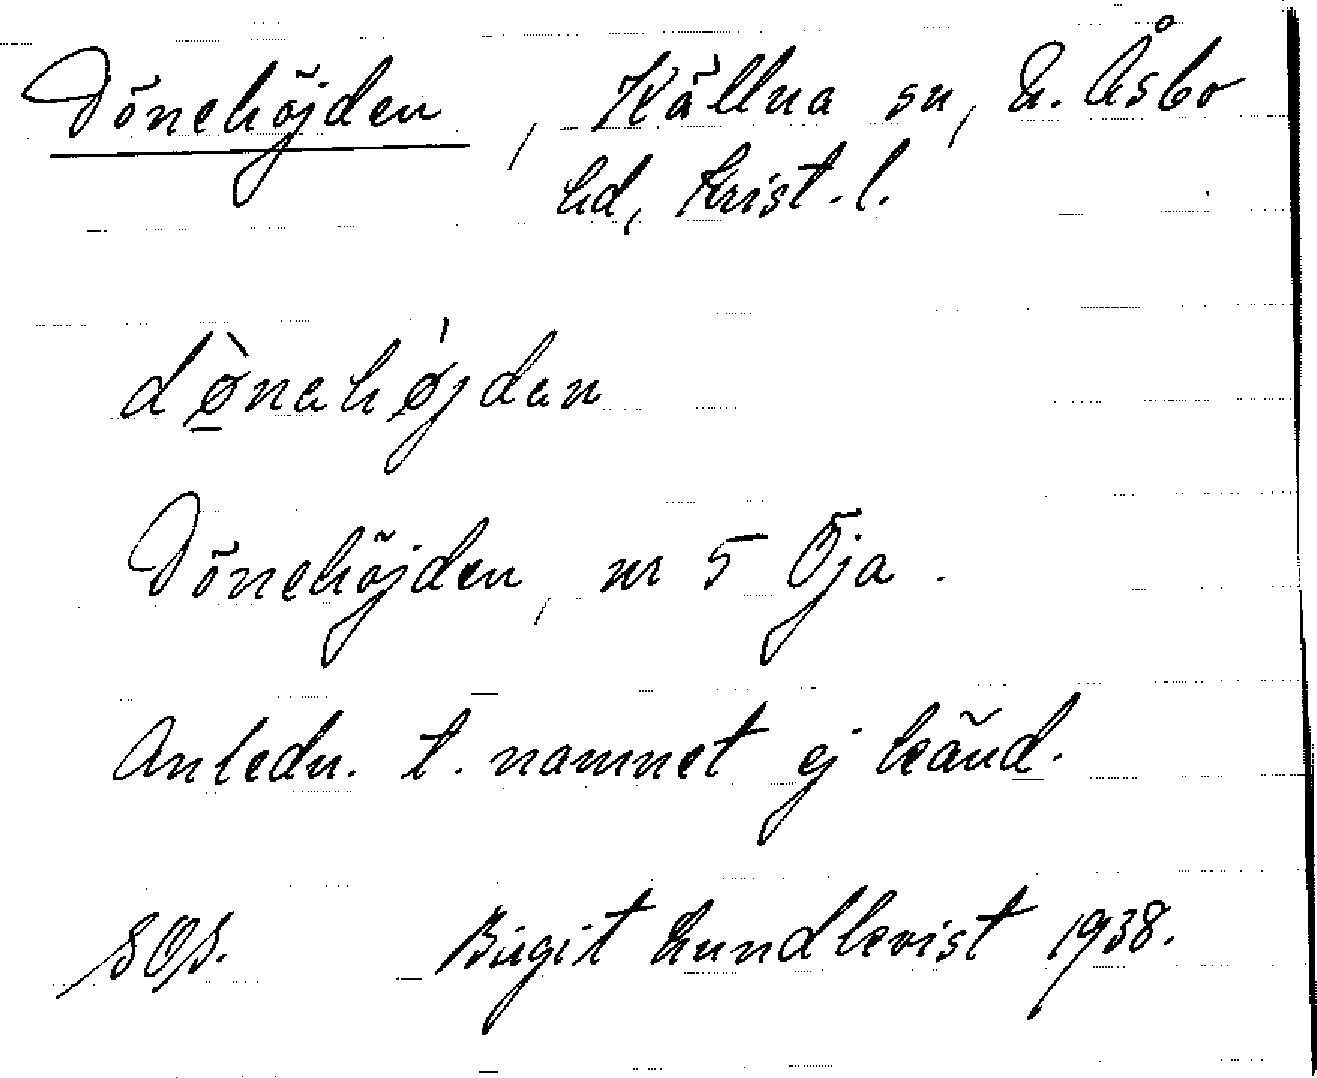 Dönehöjden, Källna sn, N. Åsbo
hd, Krist. l.
dø̀nehǿjden
Dönehöjden, nr 5 Öja.
Anledn. t. namnet ej känd.
SOS. Birgit Lundkvist 1938.